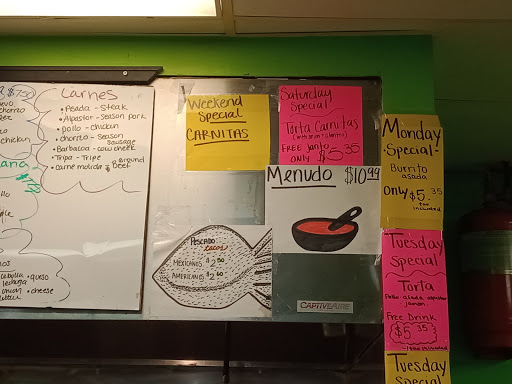 $7.50
chorizo
chicken
Carnes
• Asada - steak
• Alpastor - season pork
• pollo - chicken
• chorizo - season sausage
• Barbacoa - cow cheek
• Tripa - Tripe
• carne molida - ground Beef
• queso
lechuga
• cheese
Weekend
Special
CARNITAS
Saturday
Special
Torta Carnitas
FREE Jarrito
ONLY $5.35
Menudo $10.99
PESCADO
tacos
MEXICANOS $2.50
AMERICANOS $2.60
CAPTIVEAIRE
Monday
Special!
Burrito
asada
Only $5.35
tax included
Tuesday
Special
Torta
Pollo asada alpastor
jamon
Free Drink
$5.35
tax included
Tuesday
Special